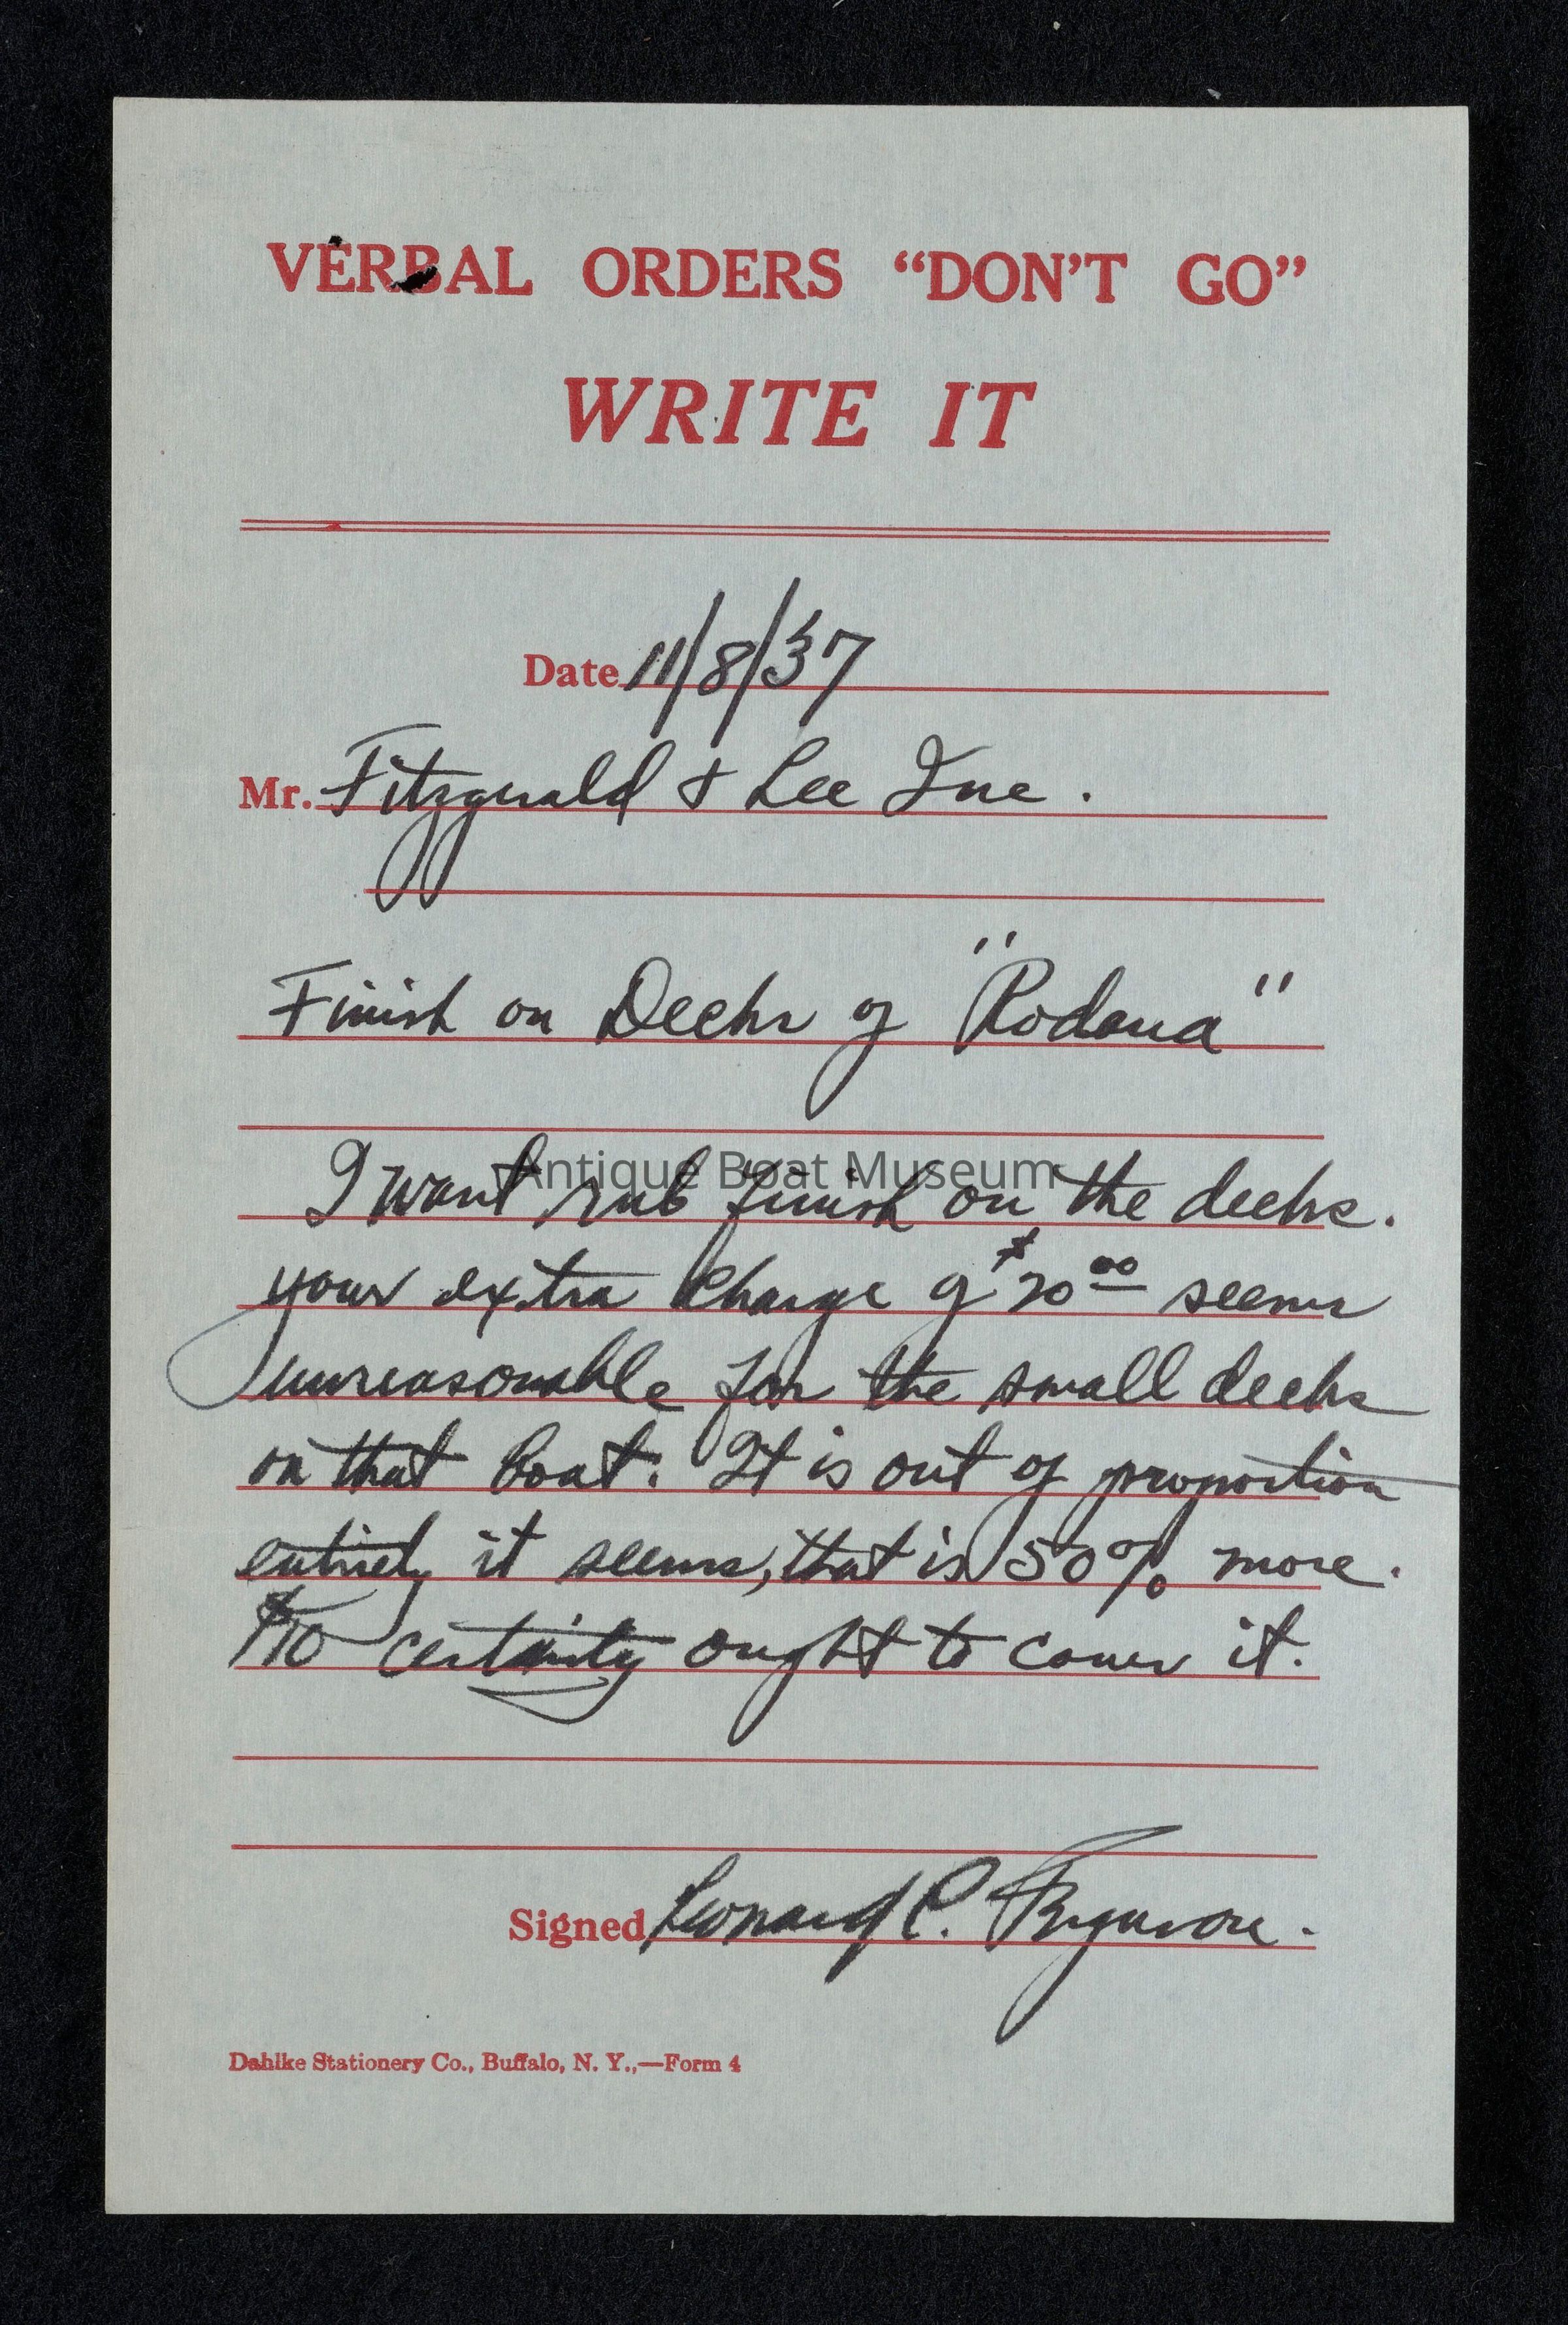 VERBAL ORDERS “DON’T GO”
WRITE IT
Date 11/8/37
Mr. Fitzgerald & Lee Inc.
Finish on Decks of "Rodona"
Antique Boat Museum
I want rub finish on the decks.
your extra charge of $20 00 seems
unreasonable for the small decks
on that boat. It is out of proportion
entirely it seems, that is 50% more.
$10 certainly ought to cover it.
Signed Leonard C. Ferguson.
Dahlke Stationery Co., Buffalo, N. Y.,—Form 4